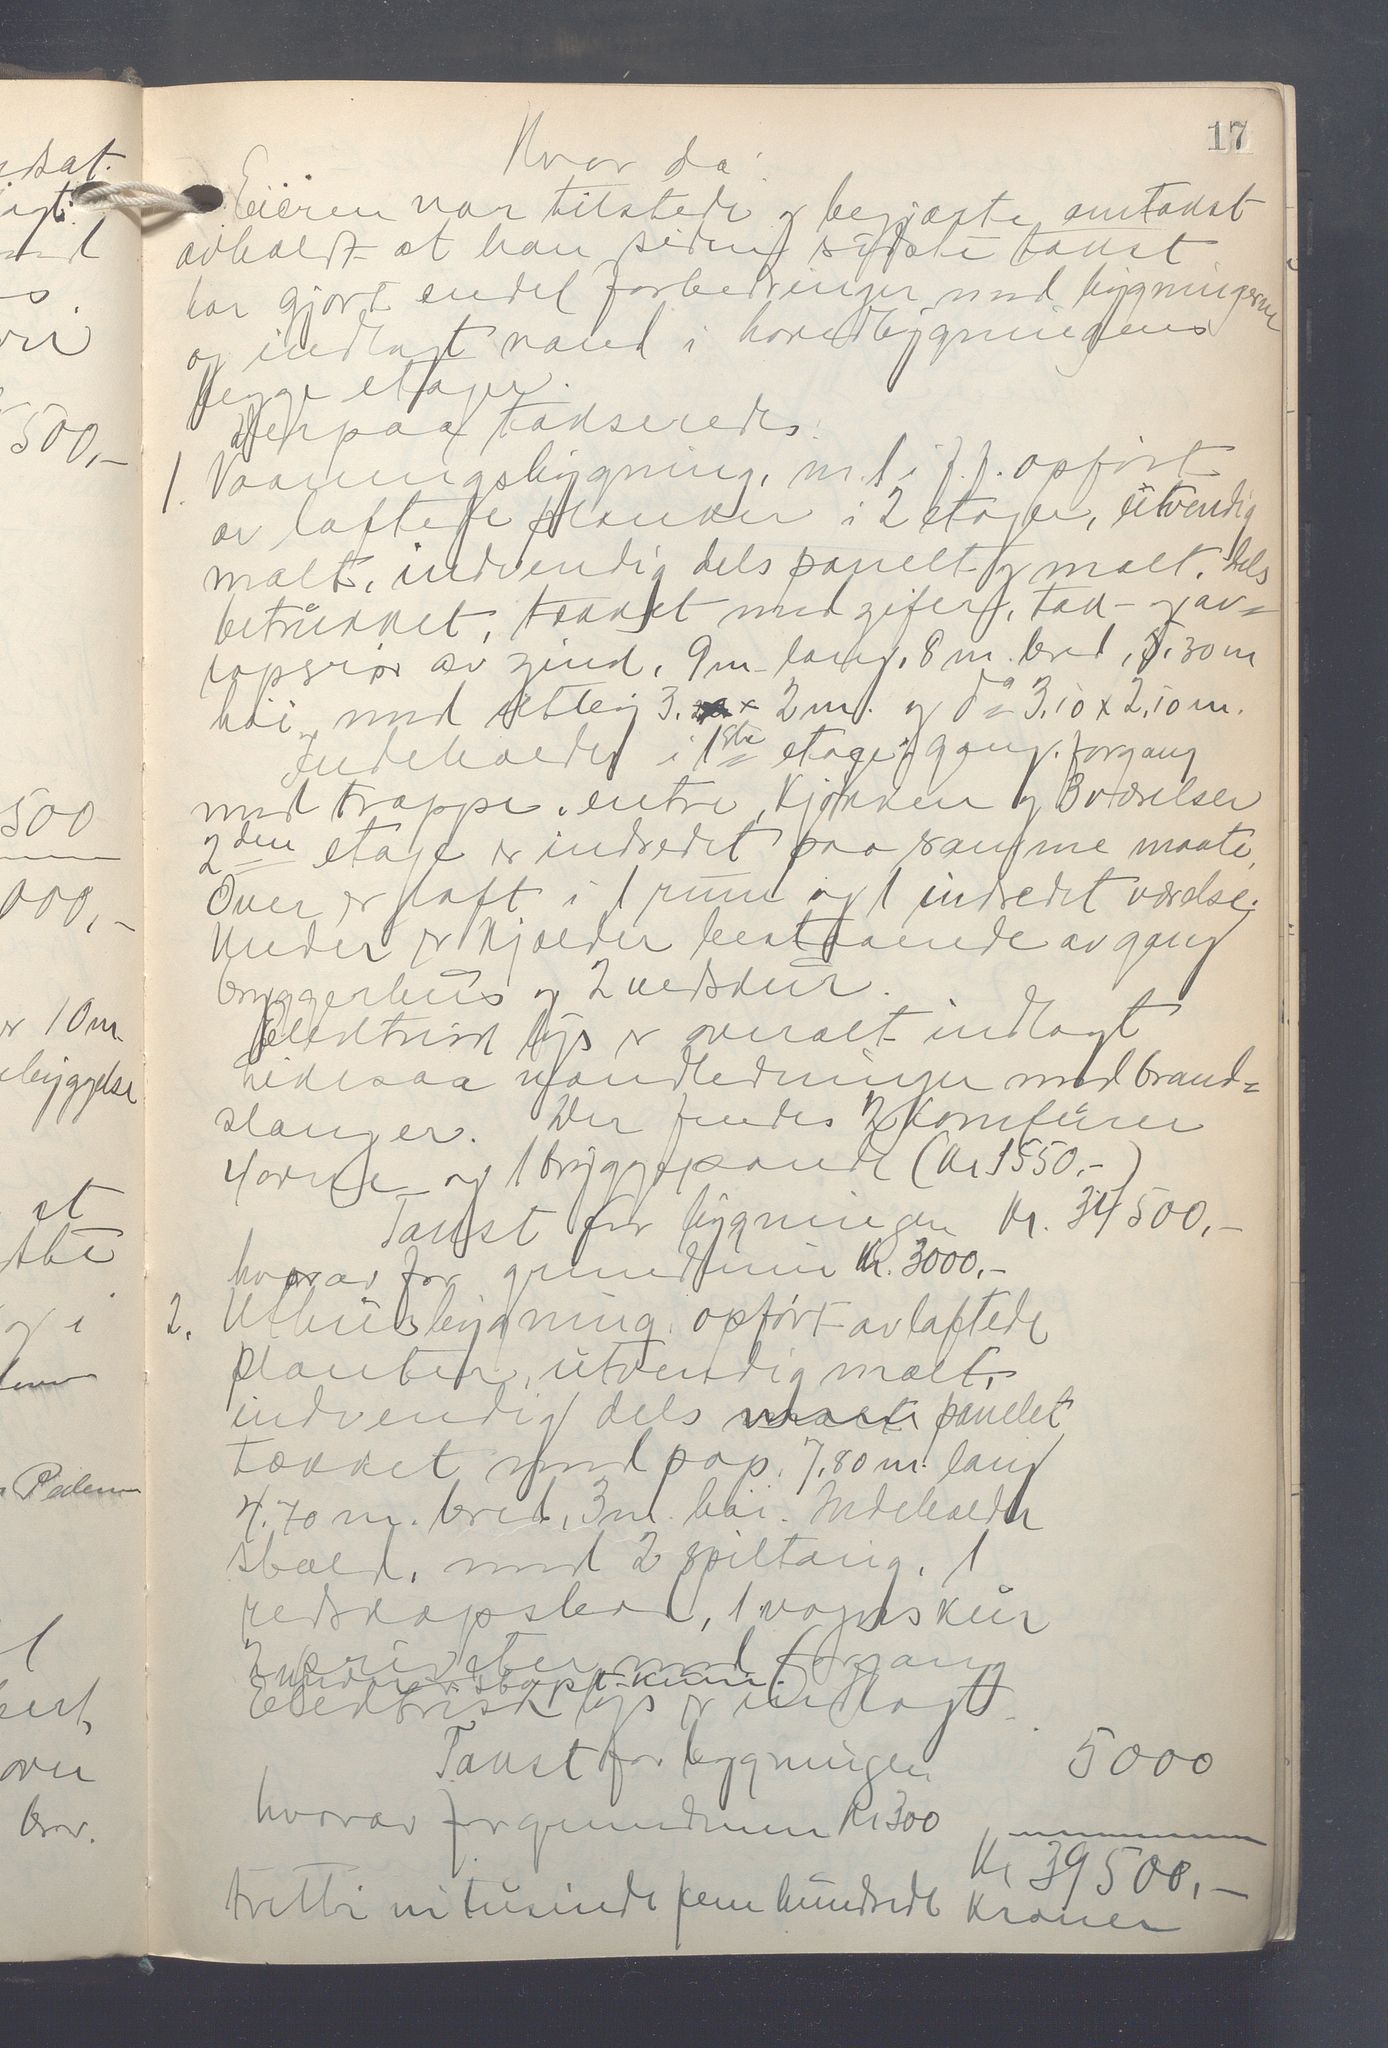 17
Hvor da:
Eieren var tilstede og begjærte omtakst
avholdt at han siden sidste takst
har gjort endel forbedringer med bygningerne
og indlagt vand i hovedbygningens
begge etager.
Derpaa takseredes:
1. Vaaningsbygning, m. 1 i f.f. opført
av laftede planker i 2 etager, utvendig
malt, indvendig dels panelt og malt, dels
betrukket, tækket med skifer, tak- og av=
løpsrør av zink, 9 m lang, 8 m. bred, 30 m
høi, med utbyg 3. x 2 m. og do 3,10 x 2,10 m.
Indeholder i 1ste etage: gang, forgang
med trappe, entre, kjøkken og 3 værelser
2den etage er indredet paa samme maate,
Over er loft i 1 rum og 1 indredet værelse.
Under er kjelder bestaaende av gang
bryggerhus og 2 vedskur.
Elektrisk lys er overalt indlagt
likesaa vandledninger med brand=
slanger. Der findes 2 komfurer
4 ovne og 1 bryggepande (Kr 1550,-)
Takst for bygningen Kr. 34500,-
hvorav for grundmur Kr. 3000,-
2. Uthusbygning, opført av laftede
planker, utvendig malt,
indvendig dels malt panelet
tækket med pap, 7,80 m. lang
4,70 m. bred, 3 m. høi. Indeholder
stald, med 2 spiltaug, 1
redskapsbod, 1 vognskur
2 priveter med forgang
Under er støpt kum.
Elektrisk lys er indlagt.
Takst for bygningen 5000
hvorav for grundmur Kr 300
Kr 39500,-
tretti ni tusinde fem hundrede Kroner
500,-
500
000,-
10 m.
bebyggelse
at
og i
over